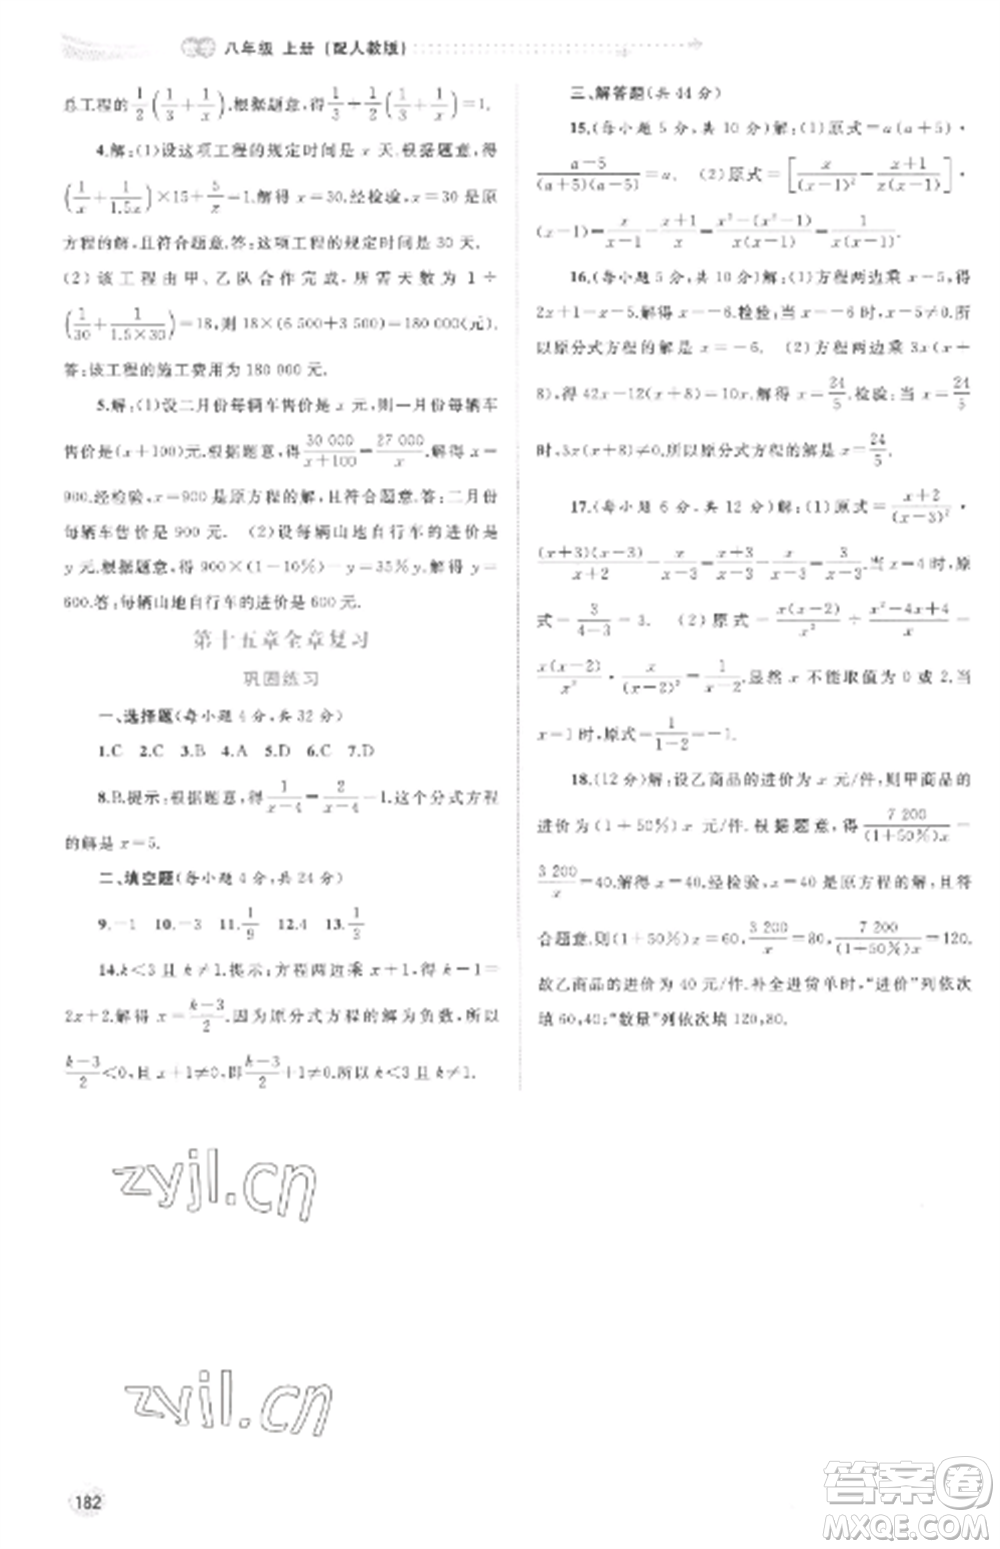 八年级 上册 (配人教版)
总工程的1/2(1/3+1/x).根据题意,得1/3+1/2(1/3+1/x)=1.
4.解:(1)设这项工程的规定时间是 x 天.根据题意,得
(1/x+1/1.5x)×15+5/x=1.解得 x=30.经检验,x=30是原
方程的解,且符合题意.答:这项工程的规定时间是30天.
(2)该工程由甲、乙队合作完成,所需天数为 1÷
(1/30+1/(1.5×30))=18,则 18×(6 500+3 500)=180 000(元).
答:该工程的施工费用为 180 000 元.
5.解:(1)设二月份每辆车售价是 x 元,则一月份每辆车
售价是(x+100)元.根据题意,得30 000/(x+100)=27 000/x.解得 x=
900.经检验,x=900是原方程的解,且符合题意.答:二月份
每辆车售价是 900 元. (2)设每辆山地自行车的进价是
y 元.根据题意,得 900×(1-10%)-y=35%y.解得 y=
600.答:每辆山地自行车的进价是 600 元.
第十五章全章复习
巩固练习
一、选择题(每小题4分,共32分)
1.C 2.B 3.B 4.A 5.D 6.C 7.D
8.B.提示:根据题意,得1/(x-4)=2/(x-4)-1.这个分式方程
的解是 x=5.
二、填空题(每小题4分,共24分)
9.-1 10.-3 11.1/9 12.4 13.1/x
14.k<3 且 k≠1.提示:方程两边乘 x+1,得 k-1=
2x+2.解得 x=(k-3)/2.因为原分式方程的解为负数,所以
(k-3)/2<0,且 x+1≠0,即(k-3)/2+1≠0.所以 k<3 且 k≠1.
三、解答题(共44分)
15.(每小题5分,共10分)解:(1)原式=a(a+5)·
(a-5)/((a+5)(a-5))=a. (2)原式=[x/(x-1)²-(x+1)/(x(x-1))]·
(x-1)=x/(x-1)-(x+1)/x=(x²-(x²-1))/(x(x-1))=1/(x(x-1)).
16.(每小题5分,共10分)解:(1)方程两边乘 x-5,得
2x+1=x-5.解得 x=-6.检验:当 x=-6时,x-5≠0.所
以原分式方程的解是 x=-6. (2)方程两边乘3x(x+
8),得 42x=12(x+8).解得 x=24/5.检验:当 x=24/5
时,3x(x+8)≠0.所以原分式方程的解是 x=24/5.
17.(每小题6分,共12分)解:(1)原式=(x+2)/(x-3)²·
(x+3)(x-3)/(x+2)-x/(x-3)=(x+3)/(x-3)-x/(x-3)=3/(x-3).当 x=4时,原
式=3/(4-3)=3. (2)原式=x(x-2)/x²÷(x²-4x+4)/x=
x(x-2)/x²·x/(x-2)²=1/(x-2).显然 x 不能取值为0或2.当
x=1时,原式=1/(1-2)=-1.
18.(12分)解:设乙商品的进价为 x 元/件,则甲商品的
进价为(1+50%)x 元/件.根据题意,得7 200/((1+50%)x)-
3 200/x=40.解得 x=40.经检验,x=40是原方程的解,且符
合题意.则(1+50%)x=60,3 200/x=80,7 200/((1+50%)x)=120.
故乙商品的进价为40元/件.补全进货单时,“进价”列依次
填60,40;“数量”列依次填120,80.
zyjl.cn
zyjl.cn
182
答案卷
MXQE.COM